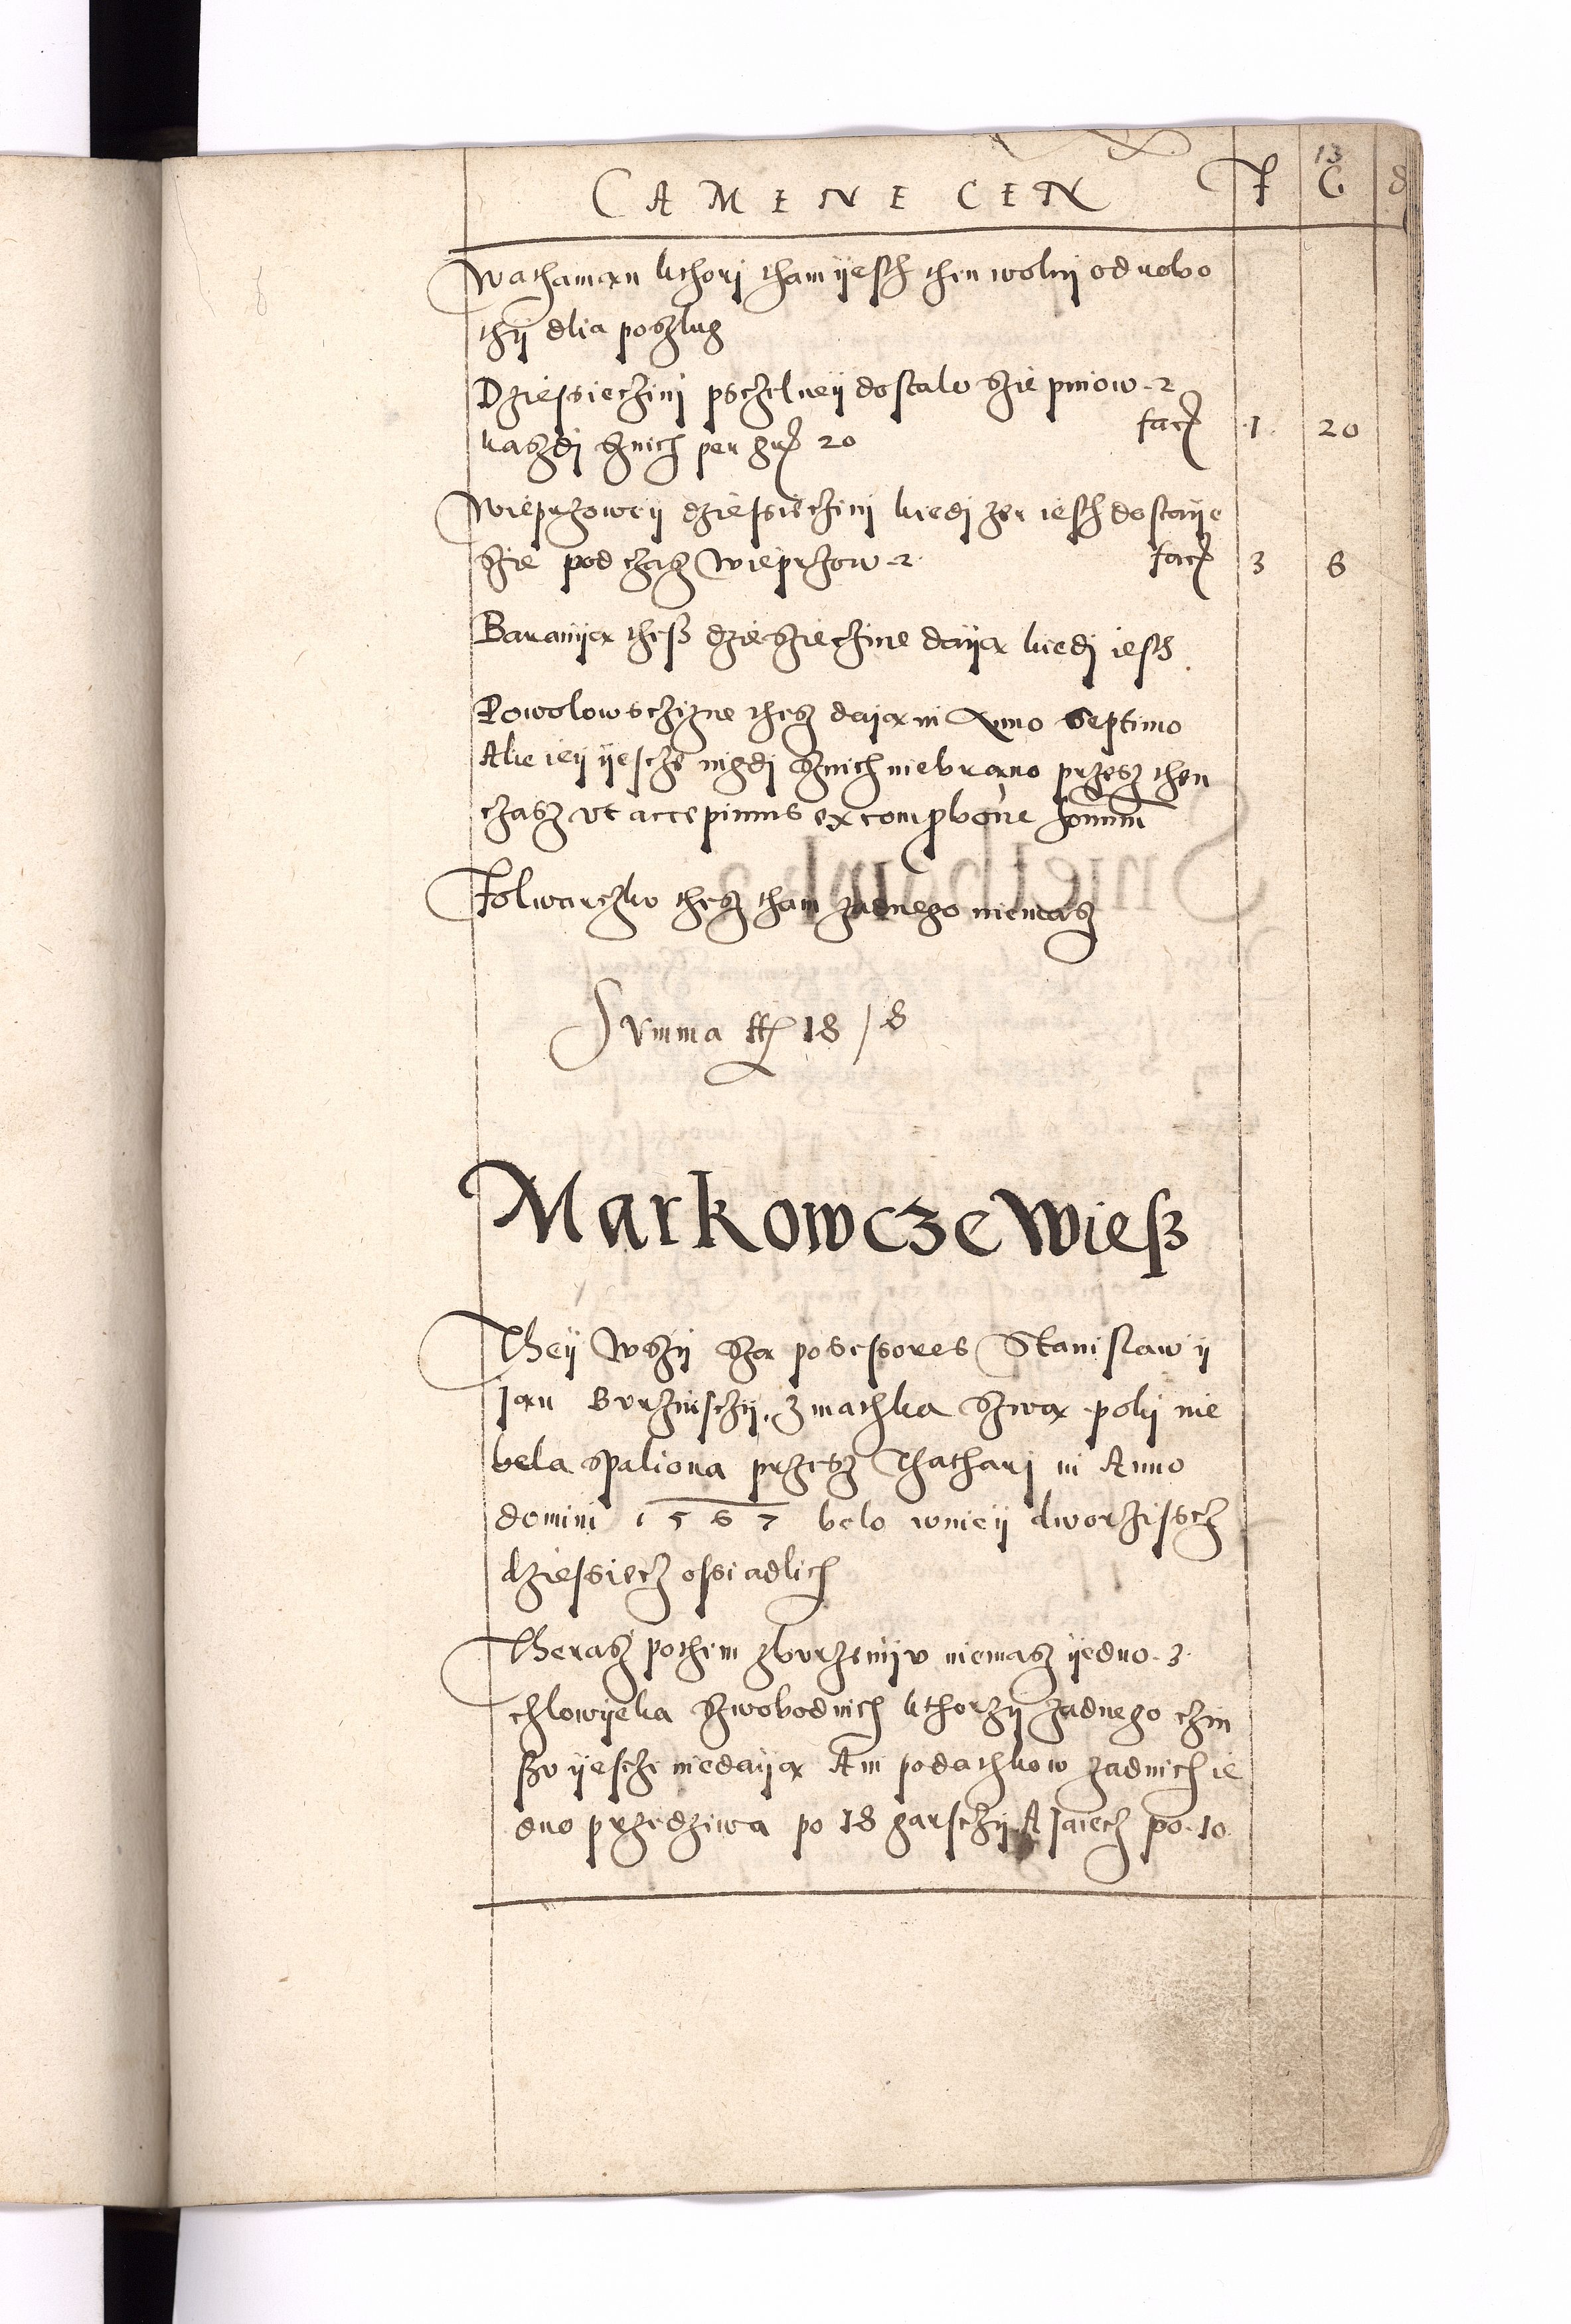 13
CAMENECEN F G d
Wathaman kthori tham yesth then wolny od robo
thy dlia poszlug
Dziessieczini psczelney dostalo szie pniow 2
kaszdi sznich per gr 20 facz 1 20
Wieprzowey dziessieczini kiedi zer iesth dostaye
szie pod czasz wieprzow 2 facz 3 6
Baranya thesz dzieszieczine daya kiedi iesth
Powolowsczizne thesz daya in Anno Septimo
Alie iey yescze nigdi sznich niebrano przesz then
czasz vt accepimus ex hominum
Folwarczku thesz tham zadnego niemasz
Summa ff 18 / 8
Markowcze Wiesz
They wszy sza possessores Stanislaw y
Jan Burzinsczy, z mathka szwa poki nie
bela spaliona przesz Thathari in Anno
domini 1567 belo wniey dworziscz
dziessiecz ossiadlich
Therasz pothem zburzeniu niemasz yedno 3
czlowyeka szwobodnich kthorzy zadnego czin
szu yescze niedaya Ani podathkow zadnich ie
dno przedziwa po 18 garsczy A Jaiecz po 10